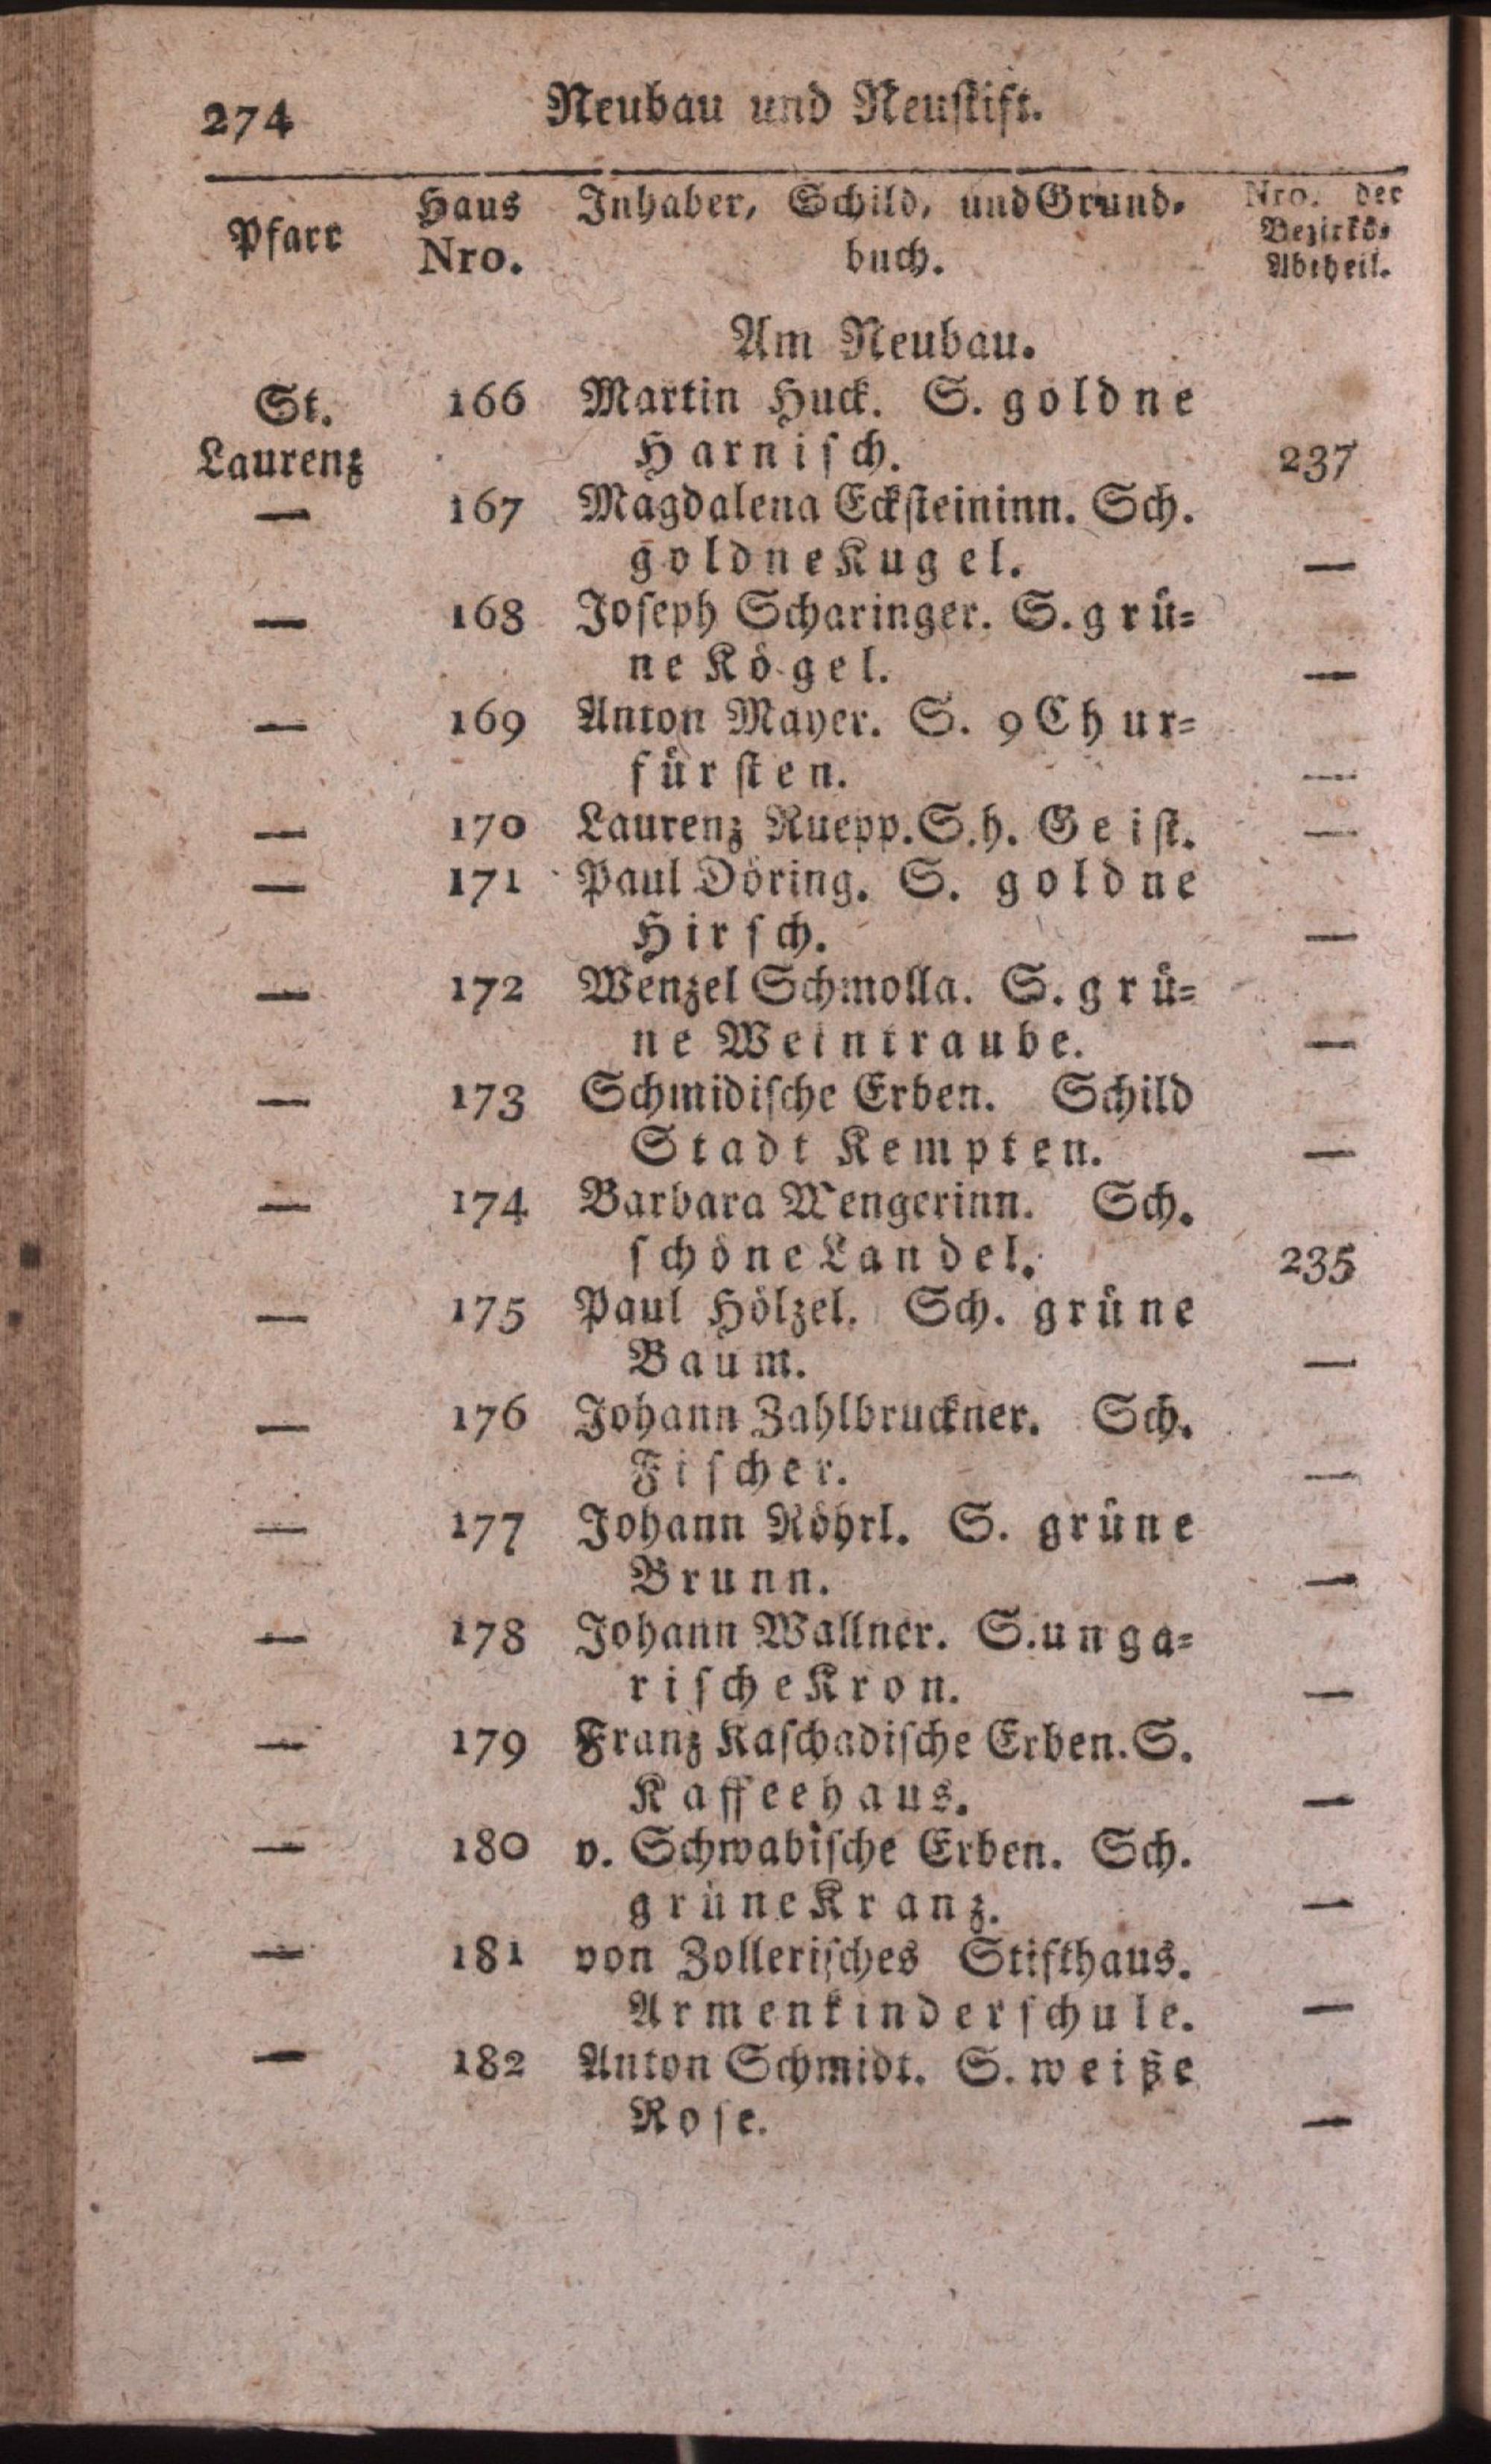 274 Neubau und Neustift.
Pfarr Haus Nro. Inhaber, Schild, und Grund- buch. Nro. der Bezirks- Abtheil.
Am Neubau.
St. 166 Martin Huck. S. goldne
Laurenz Harnisch. 237
— 167 Magdalena Ecksteininn. Sch.
goldne Kugel. —
— 168 Joseph Scharinger. S. grü-
ne Kögel. —
— 169 Anton Mayer. S. 9 Chur-
fürsten. —
— 170 Laurenz Ruepp. S. h. Geist. —
— 171 Paul Döring. S. goldne
Hirsch. —
— 172 Wenzel Schmolla. S. grü-
ne Weintraube. —
— 173 Schmidische Erben. Schild
Stadt Kempten. —
— 174 Barbara Mengerinn. Sch.
schöne Landel. 235
— 175 Paul Hölzel. Sch. grüne
Baum. —
— 176 Johann Zahlbruckner. Sch.
Fischer. —
— 177 Johann Röhrl. S. grüne
Brunn. —
— 178 Johann Wallner. S. unga-
rische Kron. —
— 179 Franz Kaschadische Erben. S.
Kaffeehaus. —
— 180 v. Schwabische Erben. Sch.
grüne Kranz. —
— 181 von Zollerisches Stifthaus.
Armenkinderschule. —
— 182 Anton Schmidt. S. weiße
Rose. —